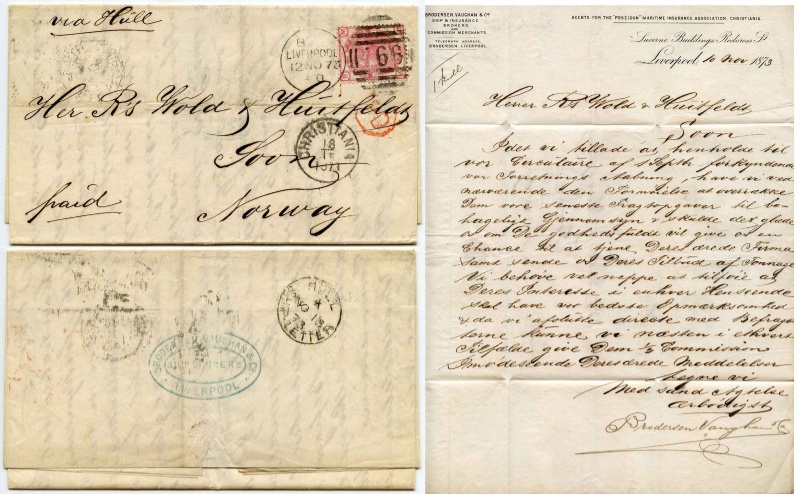 via Hull
LIVERPOOL
12 NO 73
466
Her. R's Wold & Huitfeldt
CHRISTIANIA
18
1873
Soon
paid
Norway
HULL
NO 13
73
LETTER
BRODERSEN VAUGHAN & Co
SHIP BROKERS
LIVERPOOL
BRODERSEN, VAUGHAN & Co
SHIP & INSURANCE
BROKERS
AND
COMMISSION MERCHANTS.
TELEGRAPH ADDRESS,
BRODERSEN, LIVERPOOL.
AGENTS FOR THE "POSEIDON" MARITIME INSURANCE ASSOCIATION, CHRISTIANIA.
Lucerne Buildings, Redcross St
Liverpool, 10 Nov 1873
Herrer R's Wold & Huitfeldt
Soon
Idet vi tillade os, i henhold til
vor Circulaire af 1 Septb. forkyndende
vor Forretnings Aabning, have vi ved
nærværende den Fornöielse at overrække
Dem vore seneste Fragtopgaver til be-
hageligt Gjennemsyn & skulde det glæde
os om De godhedsfuldt vil give os en
Chance til at tjene Deres ærede Firma
samt sende os Deres Tilbud af Tonnage
Vi behöve vel neppe at tilföie at
Deres Interesse i enhver Henseende
skal have vor bedste Opmærksomhed
& da vi afslutte directe med Befragt-
erne kunne vi næsten i ethvert
Tilfælde give Dem Commission
Imödeseende Deres ærede Meddelelser
tegne vi
Med sand Agtelse
ærbödigst
Brodersen Vaughan & Co